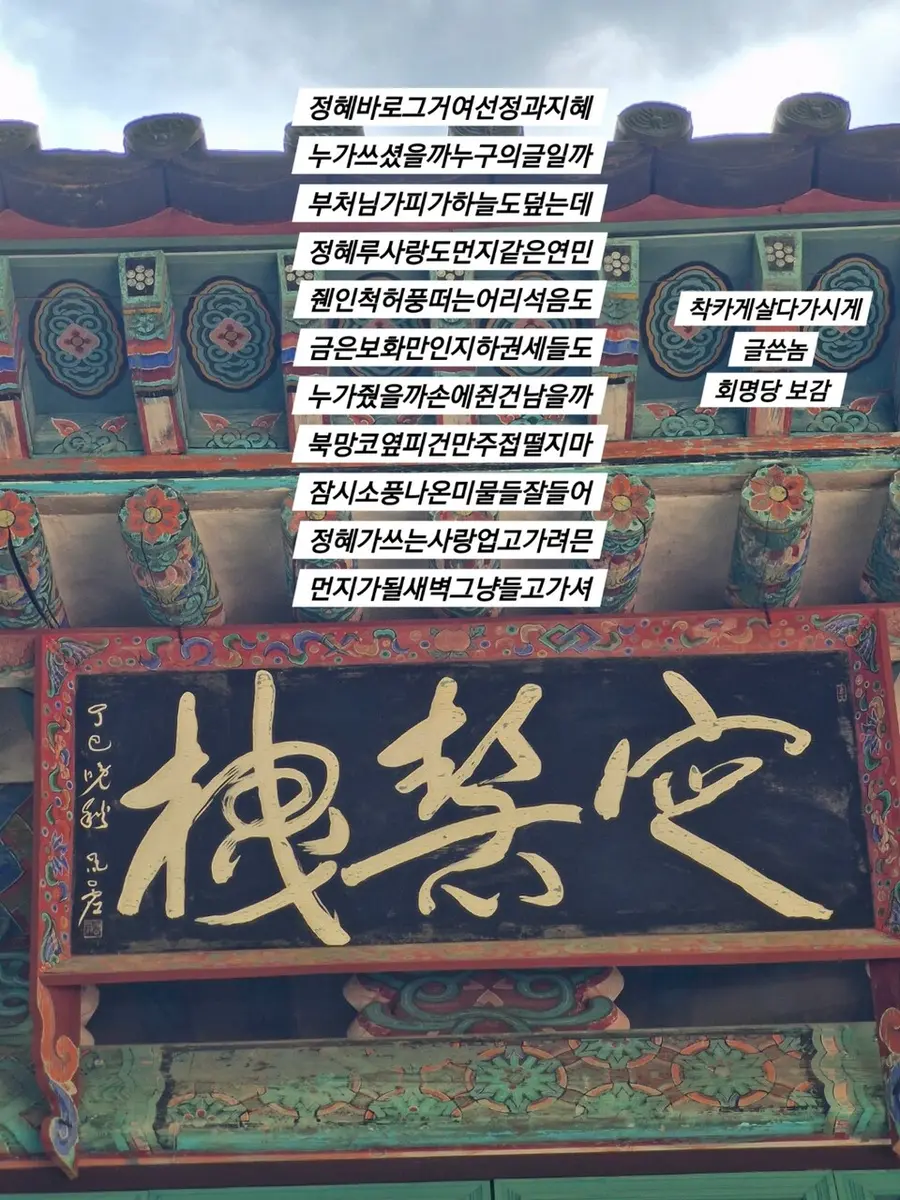 정혜바로그거여선정과지혜
누가쓰셨을까누구의글일까
부처님가피가하늘도덮는데
정혜루사랑도먼지같은연민
줸인척허풍떠는어리석음도
금은보화만인지하권세들도
누가줬을까손에쥔건남을까
북망코옆피건만주접떨지마
잠시소풍나온미물들잘들어
정혜가쓰는사랑업고가려믄
먼지가될새벽그냥들고가셔
착카게살다가시게
글쓴놈
회명당 보감
定慧樓
丁巳晩秋